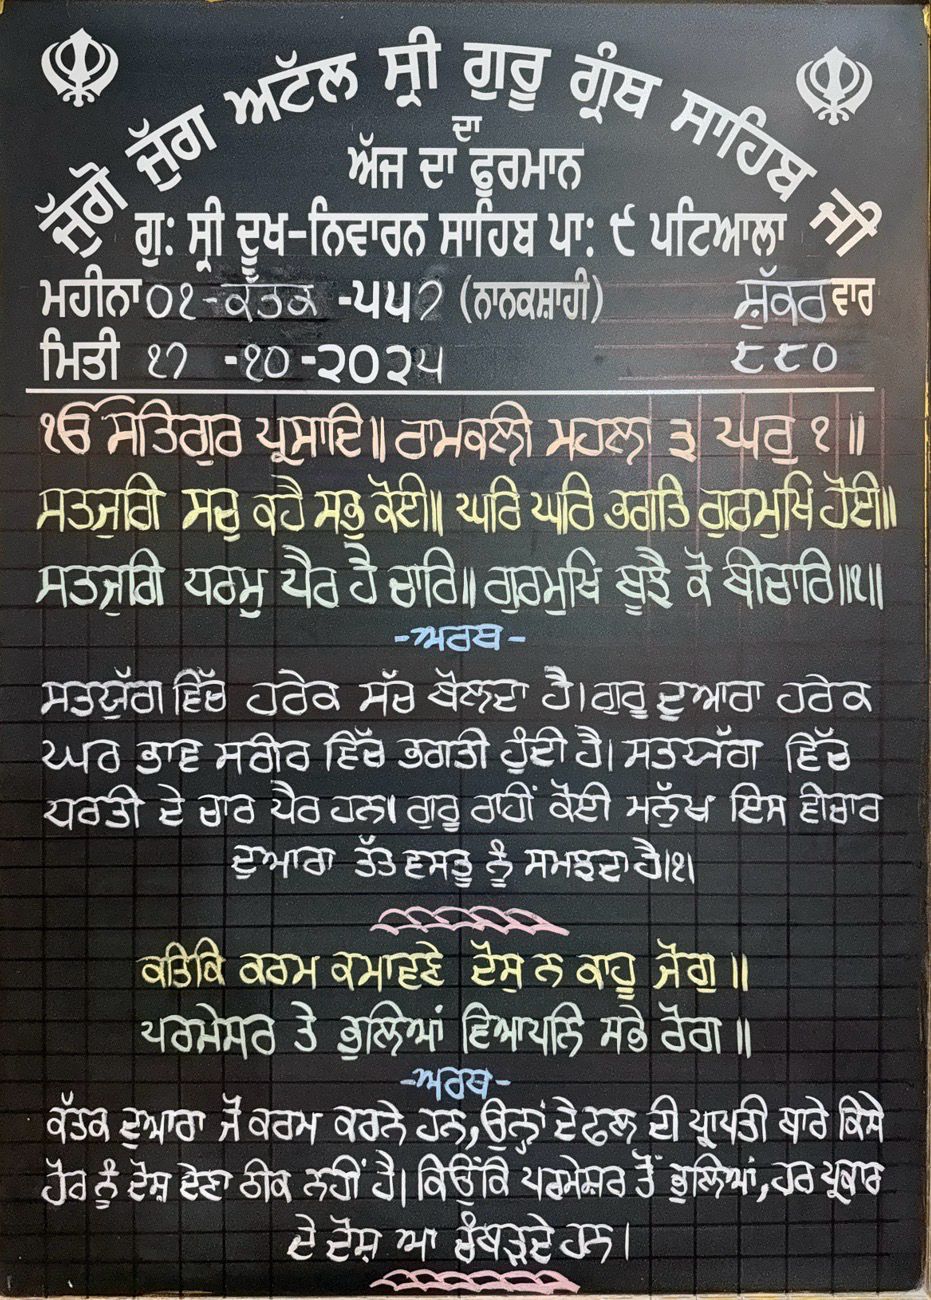 ਜੁੱਗੋ ਜੁੱਗ ਅਟੱਲ ਸ੍ਰੀ ਗੁਰੂ ਗ੍ਰੰਥ ਸਾਹਿਬ ਜੀ
ਦਾ
ਅੱਜ ਦਾ ਫੂਰਮਾਨ
ਗੁ: ਸ੍ਰੀ ਦੂਖ-ਨਿਵਾਰਨ ਸਾਹਿਬ ਪਾ: ੯ ਪਟਿਆਲਾ
ਮਹੀਨਾ ੦੧-ਕੱਤਕ -੫੫੭ (ਨਾਨਕਸ਼ਾਹੀ) ਸ਼ੁੱਕਰਵਾਰ
ਮਿਤੀ ੧੭ -੧੦ -੨੦੨੫ ੮੮੦
ੴ ਸਤਿਗੁਰ ਪ੍ਰਸਾਦਿ॥ ਰਾਮਕਲੀ ਮਹਲਾ ੩ ਘਰੁ ੧ ॥
ਸਤਜੁਗਿ ਸਚੁ ਕਹੈ ਸਭੁ ਕੋਈ॥ ਘਰਿ ਘਰਿ ਭਗਤਿ ਗੁਰਮੁਖਿ ਹੋਈ॥
ਸਤਜੁਗਿ ਧਰਮੁ ਪੈਰ ਹੈ ਚਾਰਿ॥ ਗੁਰਮੁਖਿ ਬੂਝੈ ਕੋ ਬੀਚਾਰਿ॥੧॥
-ਅਰਥ-
ਸਤਯੁੱਗ ਵਿੱਚ ਹਰੇਕ ਸੱਚ ਬੋਲਦਾ ਹੈ। ਗੁਰੂ ਦੁਆਰਾ ਹਰੇਕ
ਘਰ ਭਾਵ ਸਰੀਰ ਵਿੱਚ ਭਗਤੀ ਹੁੰਦੀ ਹੈ। ਸਤਯੁੱਗ ਵਿੱਚ
ਧਰਤੀ ਦੇ ਚਾਰ ਪੈਰ ਹਨ। ਗੁਰੂ ਰਾਹੀਂ ਕੋਈ ਮਨੁੱਖ ਇਸ ਵੀਚਾਰ
ਦੁਆਰਾ ਤੱਤ ਵਸਤੂ ਨੂੰ ਸਮਝਦਾ ਹੈ।੧।
ਕਤਿਕਿ ਕਰਮ ਕਮਾਵਣੇ ਦੋਸੁ ਨ ਕਾਹੂ ਜੋਗੁ ॥
ਪਰਮੇਸਰ ਤੇ ਭੁਲਿਆਂ ਵਿਆਪਨਿ ਸਭੇ ਰੋਗ ॥
-ਅਰਥ-
ਕੱਤਕ ਦੁਆਰਾ ਜੋ ਕਰਮ ਕਰਨੇ ਹਨ, ਉਨ੍ਹਾਂ ਦੇ ਫਲ ਦੀ ਪ੍ਰਾਪਤੀ ਬਾਰੇ ਕਿਸੇ
ਹੋਰ ਨੂੰ ਦੋਸ਼ ਦੇਣਾ ਠੀਕ ਨਹੀਂ ਹੈ। ਕਿਉਂਕਿ ਪਰਮੇਸ਼ਰ ਤੋਂ ਭੁਲਿਆਂ, ਹਰ ਪ੍ਰਕਾਰ
ਦੇ ਦੋਸ਼ ਆ ਚੰਬੜਦੇ ਹਨ।